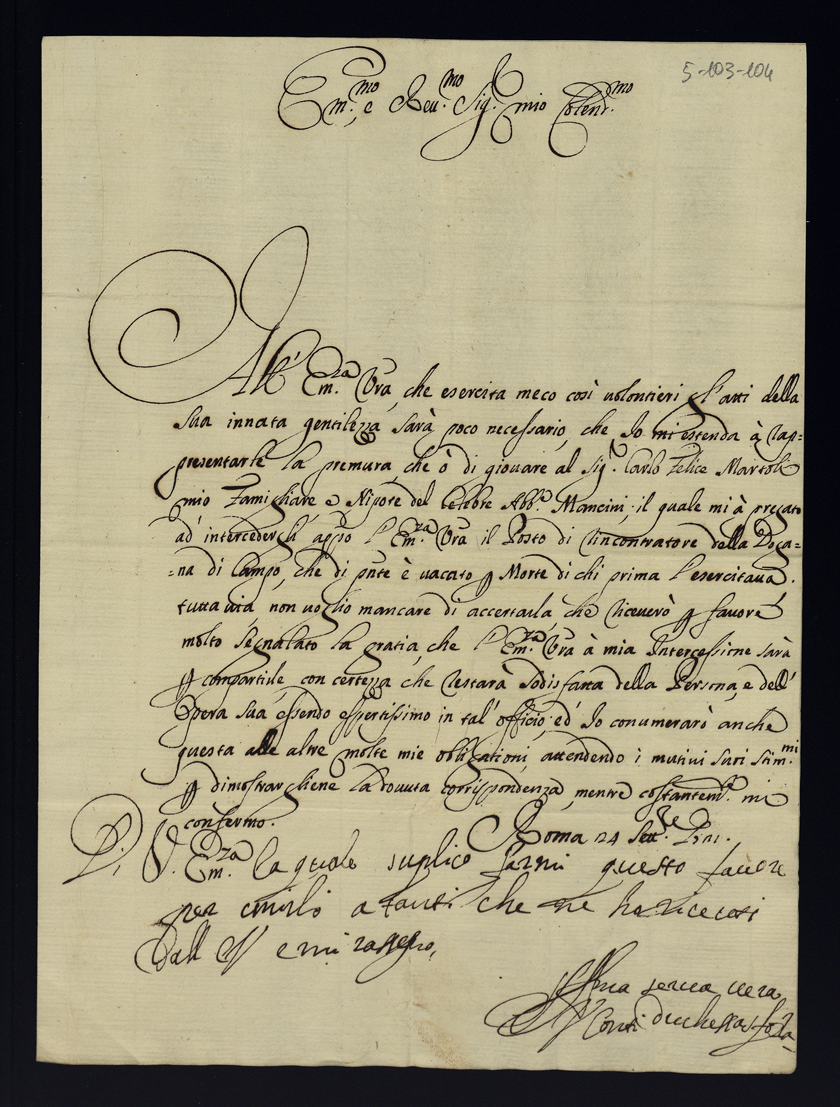 5-103-104
Em.mo e Reu.mo Sig.r mio Colend.mo
All' Em.za Vra, che esercita meco così uolontieri gl'atti della
sua innata gentilezza sarà poco necessario, che Io mi estenda à rap=
presentarle la premura che ò di giouare al Sig.r Carlo Felice Martoli
mio Famigliare e Nipote del Celebre Abb.e Mancini; il quale mi à pregato
ad' interceder li app.o l' Em.za Vra il Posto di Rincontratore della Doga=
=na di Campo, che di pnte è uacato p Morte di chi prima l' esercitaua.
tutta uia non uoglio mancare di accertarla, che riceuerò p fauore
molto segnalato la gratia, che l' Em.za Vra à mia Intercessione sarà
p compartirle, con certezza che restarà sodisfatta della Persona, e dell'
Opera sua, essendo espertissimo in tal' officio; ed' Io conumerarò anche
questa alle altre molte mie obligationi, attendendo i motiui suoi stim.mi
p dimostrargliene la douuta corrispondenza, mentre costantem.e mi
confermo.
Roma 24 Sett.re
Di V. Em.za la quale suplico farmi questo fauore
per unirlo a tanti che ne ho riceuti
dall
serua uera
Conti duchessa